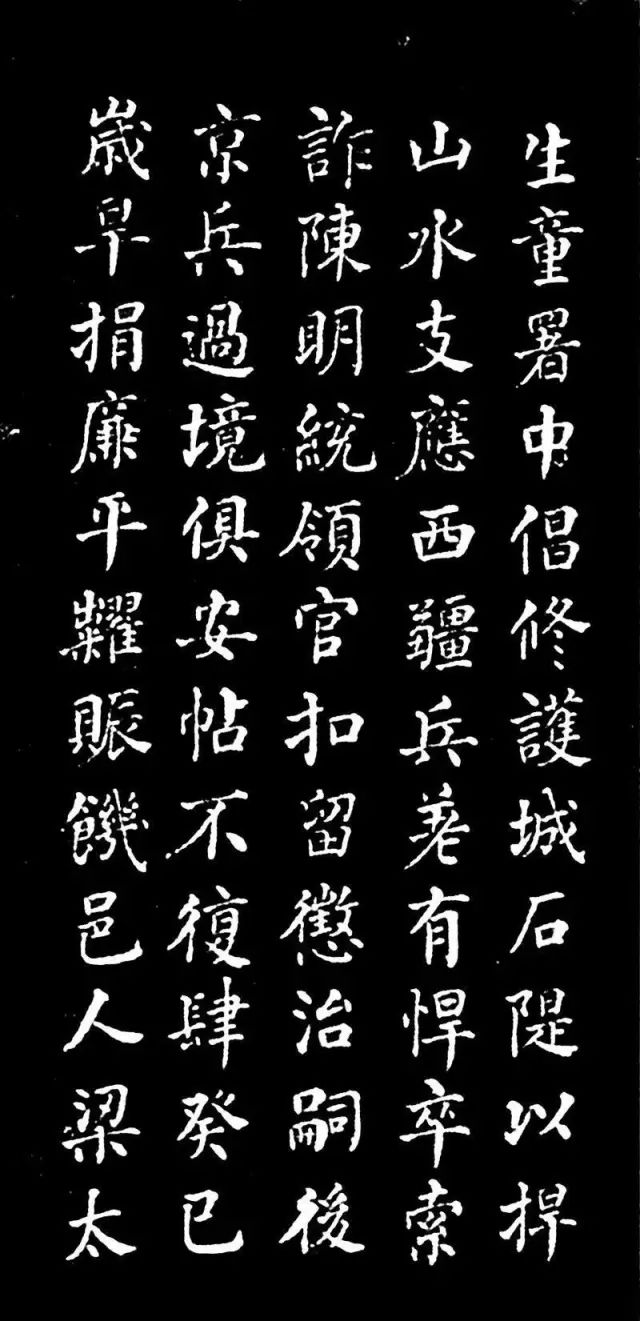 生童署中倡修護城石隄以捍
山水支應西疆兵差有悍卒索
詐陳明統領官扣留懲治嗣後
京兵過境俱安帖不復肆癸巳
歳旱捐廉平糶賑饑邑人梁太